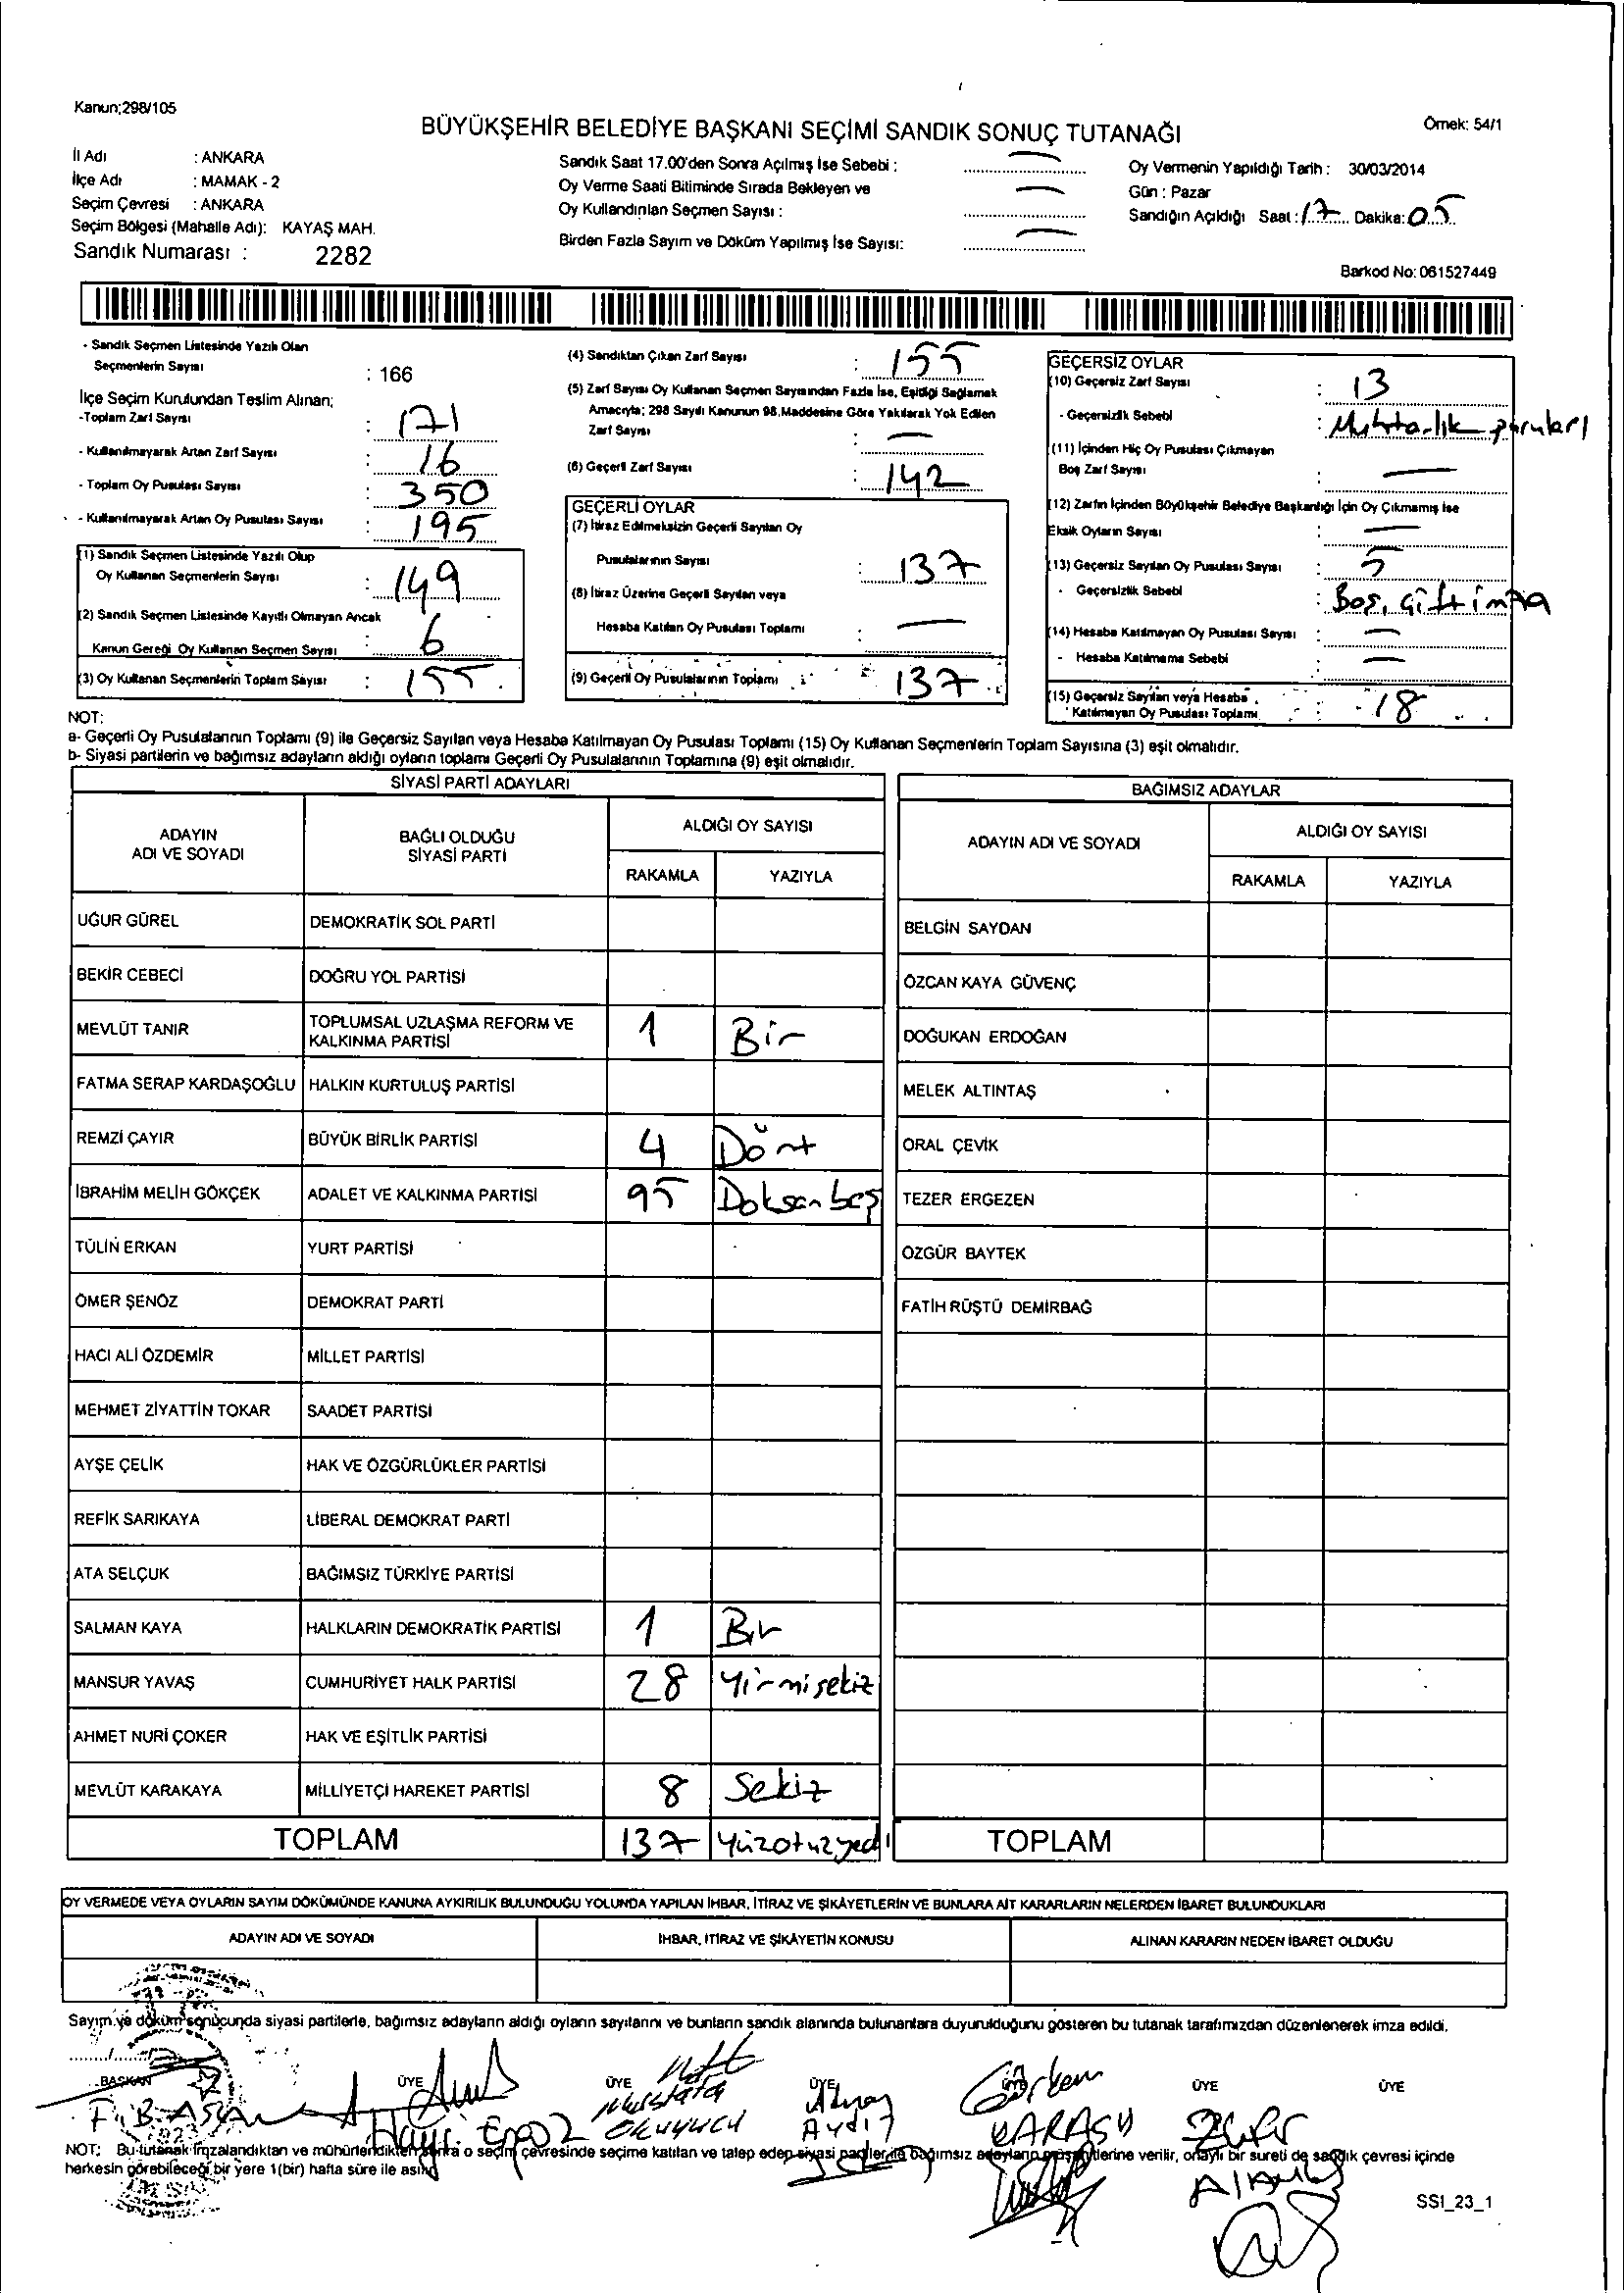 Kanun;298/105
BÜYÜKŞEHİR BELEDİYE BAŞKANI SEÇİMİ SANDIK SONUÇ TUTANAĞI
Örnek: 54/1
İl Adı : ANKARA
İlçe Adı : MAMAK - 2
Seçim Çevresi : ANKARA
Seçim Bölgesi (Mahalle Adı): KAYAŞ MAH.
Sandık Numarası : 2282
Sandık Saat 17.00'den Sonra Açılmış İse Sebebi : —
Oy Verme Saati Bitiminde Sırada Bekleyen ve —
Oy Kullandırılan Seçmen Sayısı :
Birden Fazla Sayım ve Döküm Yapılmış İse Sayısı: —
Oy Vermenin Yapıldığı Tarih : 30/03/2014
Gün : Pazar
Sandığın Açıldığı Saat : 17 Dakika: 05
Barkod No: 061527449
- Sandık Seçmen Listesinde Yazılı Olan
Seçmenlerin Sayısı : 166
İlçe Seçim Kurulundan Teslim Alınan;
-Toplam Zarf Sayısı : 171
- Kullanılmayarak Artan Zarf Sayısı : 16
- Toplam Oy Pusulası Sayısı : 350
- Kullanılmayarak Artan Oy Pusulası Sayısı : 195
(1) Sandık Seçmen Listesinde Yazılı Olup
Oy Kullanan Seçmenlerin Sayısı : 149
(2) Sandık Seçmen Listesinde Kayıtlı Olmayan Ancak
Kanun Gereği Oy Kullanan Seçmen Sayısı : 6
(3) Oy Kullanan Seçmenlerin Toplam Sayısı : 155
(4) Sandıktan Çıkan Zarf Sayısı : 155
(5) Zarf Sayısı Oy Kullanan Seçmen Sayısından Fazla İse, Eşitliği Sağlamak
Amacıyla; 298 Sayılı Kanunun 98.Maddesine Göre Yakılarak Yok Edilen
Zarf Sayısı : —
(6) Geçerli Zarf Sayısı : 142
GEÇERLİ OYLAR
(7) İtiraz Edilmeksizin Geçerli Sayılan Oy
Pusulalarının Sayısı : 137
(8) İtiraz Üzerine Geçerli Sayılan veya
Hesaba Katılan Oy Pusulası Toplamı : —
(9) Geçerli Oy Pusulalarının Toplamı : 137
GEÇERSİZ OYLAR
(10) Geçersiz Zarf Sayısı : 13
- Geçersizlik Sebebi : Muhtarlık
(11) İçinden Hiç Oy Pusulası Çıkmayan
Boş Zarf Sayısı : —
(12) Zarfın İçinden Büyükşehir Belediye Başkanlığı İçin Oy Çıkmamış İse
Eksik Oyların Sayısı : —
(13) Geçersiz Sayılan Oy Pusulası Sayısı : 5
- Geçersizlik Sebebi : Boş, Çift imza
(14) Hesaba Katılmayan Oy Pusulası Sayısı : —
- Hesaba Katılmama Sebebi : —
(15) Geçersiz Sayılan veya Hesaba
Katılmayan Oy Pusulası Toplamı : 18
NOT:
a- Geçerli Oy Pusulalarının Toplamı (9) ile Geçersiz Sayılan veya Hesaba Katılmayan Oy Pusulası Toplamı (15) Oy Kullanan Seçmenlerin Toplam Sayısına (3) eşit olmalıdır.
b- Siyasi partilerin ve bağımsız adayların aldığı oyların toplamı Geçerli Oy Pusulalarının Toplamına (9) eşit olmalıdır.
SİYASİ PARTİ ADAYLARI
ADAYIN ADI VE SOYADI
BAĞLI OLDUĞU SİYASİ PARTİ
ALDIĞI OY SAYISI
RAKAMLA YAZIYLA
UĞUR GÜREL DEMOKRATİK SOL PARTİ
BEKİR CEBECİ DOĞRU YOL PARTİSİ
MEVLÜT TANIR TOPLUMSAL UZLAŞMA REFORM VE KALKINMA PARTİSİ 1 Bir
FATMA SERAP KARDAŞOĞLU HALKIN KURTULUŞ PARTİSİ
REMZİ ÇAYIR BÜYÜK BİRLİK PARTİSİ 4 Dört
İBRAHİM MELİH GÖKÇEK ADALET VE KALKINMA PARTİSİ 95 Doksan beş
TÜLİN ERKAN YURT PARTİSİ
ÖMER ŞENÖZ DEMOKRAT PARTİ
HACI ALİ ÖZDEMİR MİLLET PARTİSİ
MEHMET ZİYATTİN TOKAR SAADET PARTİSİ
AYŞE ÇELİK HAK VE ÖZGÜRLÜKLER PARTİSİ
REFİK SARIKAYA LİBERAL DEMOKRAT PARTİ
ATA SELÇUK BAĞIMSIZ TÜRKİYE PARTİSİ
SALMAN KAYA HALKLARIN DEMOKRATİK PARTİSİ 1 Bir
MANSUR YAVAŞ CUMHURİYET HALK PARTİSİ 28 Yirmisekiz
AHMET NURİ ÇOKER HAK VE EŞİTLİK PARTİSİ
MEVLÜT KARAKAYA MİLLİYETÇİ HAREKET PARTİSİ 8 Sekiz
TOPLAM 137 Yüzotuzyedi
BAĞIMSIZ ADAYLAR
ADAYIN ADI VE SOYADI
ALDIĞI OY SAYISI
RAKAMLA YAZIYLA
BELGİN SAYDAN
ÖZCAN KAYA GÜVENÇ
DOĞUKAN ERDOĞAN
MELEK ALTINTAŞ
ORAL ÇEVİK
TEZER ERGEZEN
ÖZGÜR BAYTEK
FATİH RÜŞTÜ DEMİRBAĞ
TOPLAM
OY VERMEDE VEYA OYLARIN SAYIM DÖKÜMÜNDE KANUNA AYKIRILIK BULUNDUĞU YOLUNDA YAPILAN İHBAR, İTİRAZ VE ŞİKÂYETLERİN VE BUNLARA AİT KARARLARIN NELERDEN İBARET BULUNDUKLARI
ADAYIN ADI VE SOYADI İHBAR, İTİRAZ VE ŞİKÂYETİN KONUSU ALINAN KARARIN NEDEN İBARET OLDUĞU
Sayım ve döküm sonucunda siyasi partilerle, bağımsız adayların aldığı oyların sayılarını ve bunların sandık alanında bulunanlara duyurulduğunu gösteren bu tutanak tarafımızdan düzenlenerek imza edildi.
BAŞKAN ÜYE ÜYE ÜYE ÜYE ÜYE ÜYE
Mustafa Okuyucu
Aydın
Görkem KARASU
NOT: Bu tutanak imzalandıktan ve mühürlendikten sonra o seçim çevresinde seçime katılan ve talep eden siyasi partiler ile bağımsız adayların müşahitlerine verilir, onaylı bir sureti de sandık çevresi içinde
herkesin görebileceği bir yere 1(bir) hafta süre ile asılır.
SSI_23_1